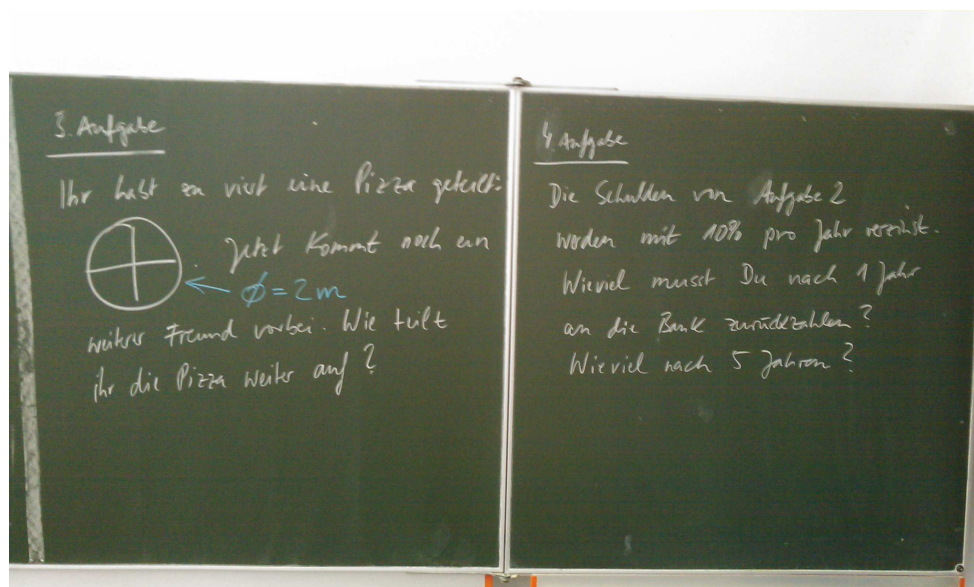 3. Aufgabe
Ihr habt zu viert eine Pizza geteilt:
Jetzt kommt noch ein
∅ = 2 m
weiterer Freund vorbei. Wie teilt
ihr die Pizza weiter auf?
4. Aufgabe
Die Schulden von Aufgabe 2
werden mit 10% pro Jahr verzinst.
Wieviel musst Du nach 1 Jahr
an die Bank zurückzahlen?
Wieviel nach 5 Jahren?